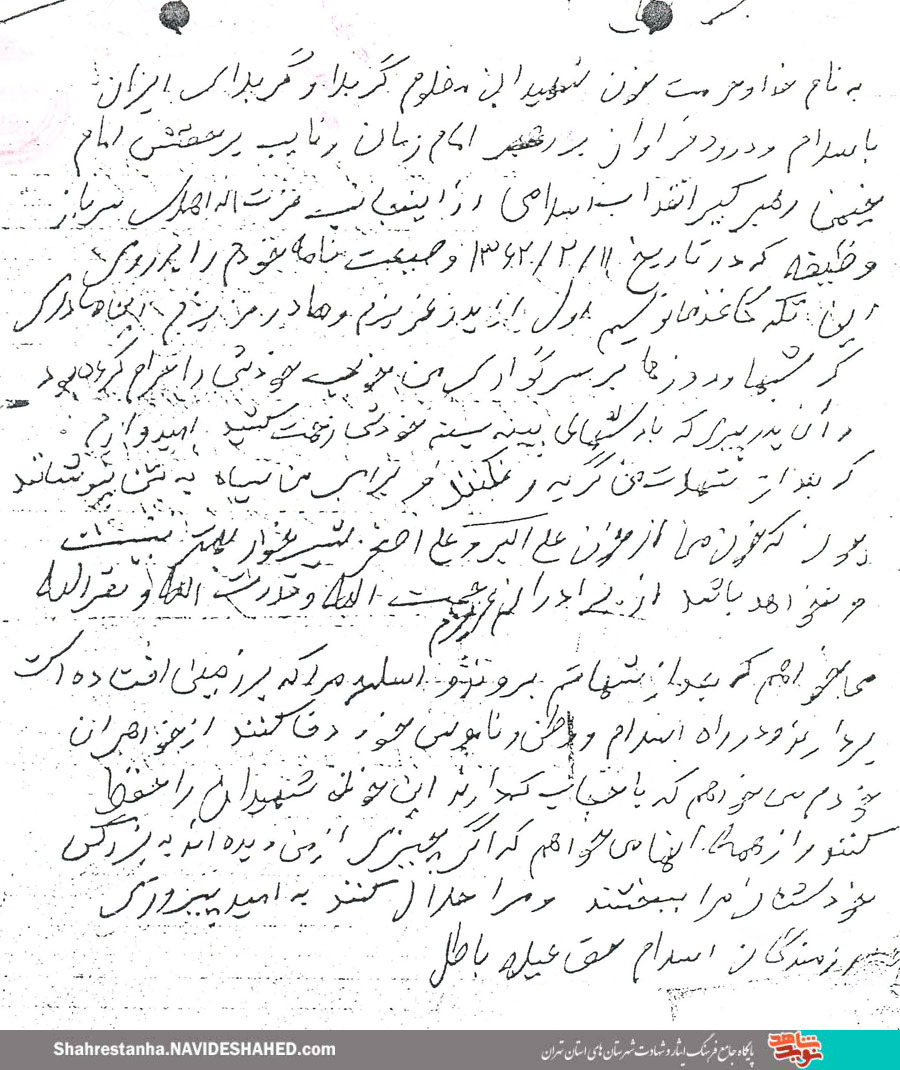 به نام خدا و حرمت خون شهیدان مظلوم کربلا و کربلای ایران
با سلام و درود فراوان بر رهبر امام زمان و نایب برحقش امام
خمینی رهبر کبیر انقلاب اسلامی از اینجانب عزت اله اصلی سرباز
وظیفه که در تاریخ ۱۳۶۲/۲/۱۱ وصیعت نامه خودم را بر روی
این تکه کاغذ مینویسم اول از پدر عزیزم و مادر عزیزم این مادری
که شبها و روزها بر سر گواری من خوب خودش را حرام کرده بود
و آن پدر پیری که با دستهای پینه بسته خودش زحمت کشید امیدوارم
که بعد از شهادت من گریه و نکنند و برای من سیاه به تن نپوشانند
چون که خون ما از خون علی اکبر و علی اصغر شیرخوار بهتر نیست
و نخواهد باشد از برادران عزیزم حشمت الله و قدرت الله و نصرالله
میخواهم که بعد از شهادتم بروند و اسلحه مرا که بر زمین افتاده است
بردارند و در راه اسلام و وطن و ناموس خود دفاع کنند از خواهران
خودم می خواهم که با حجاب که دارند این خون شهیدان را حفظ
کنند و از همه آنها می خواهم که اگر چیزی از من دیده اند به بزرگی
خودشان مرا ببخشند و مرا حلال کنند به امید پیروزی
رزمندگان اسلام حق علیه باطل
Shahrestanha.NAVIDESHAHED.com
پایگاه جامع فرهنگ ایثار و شهادت شهرستان های استان تهران
نوید شاهد